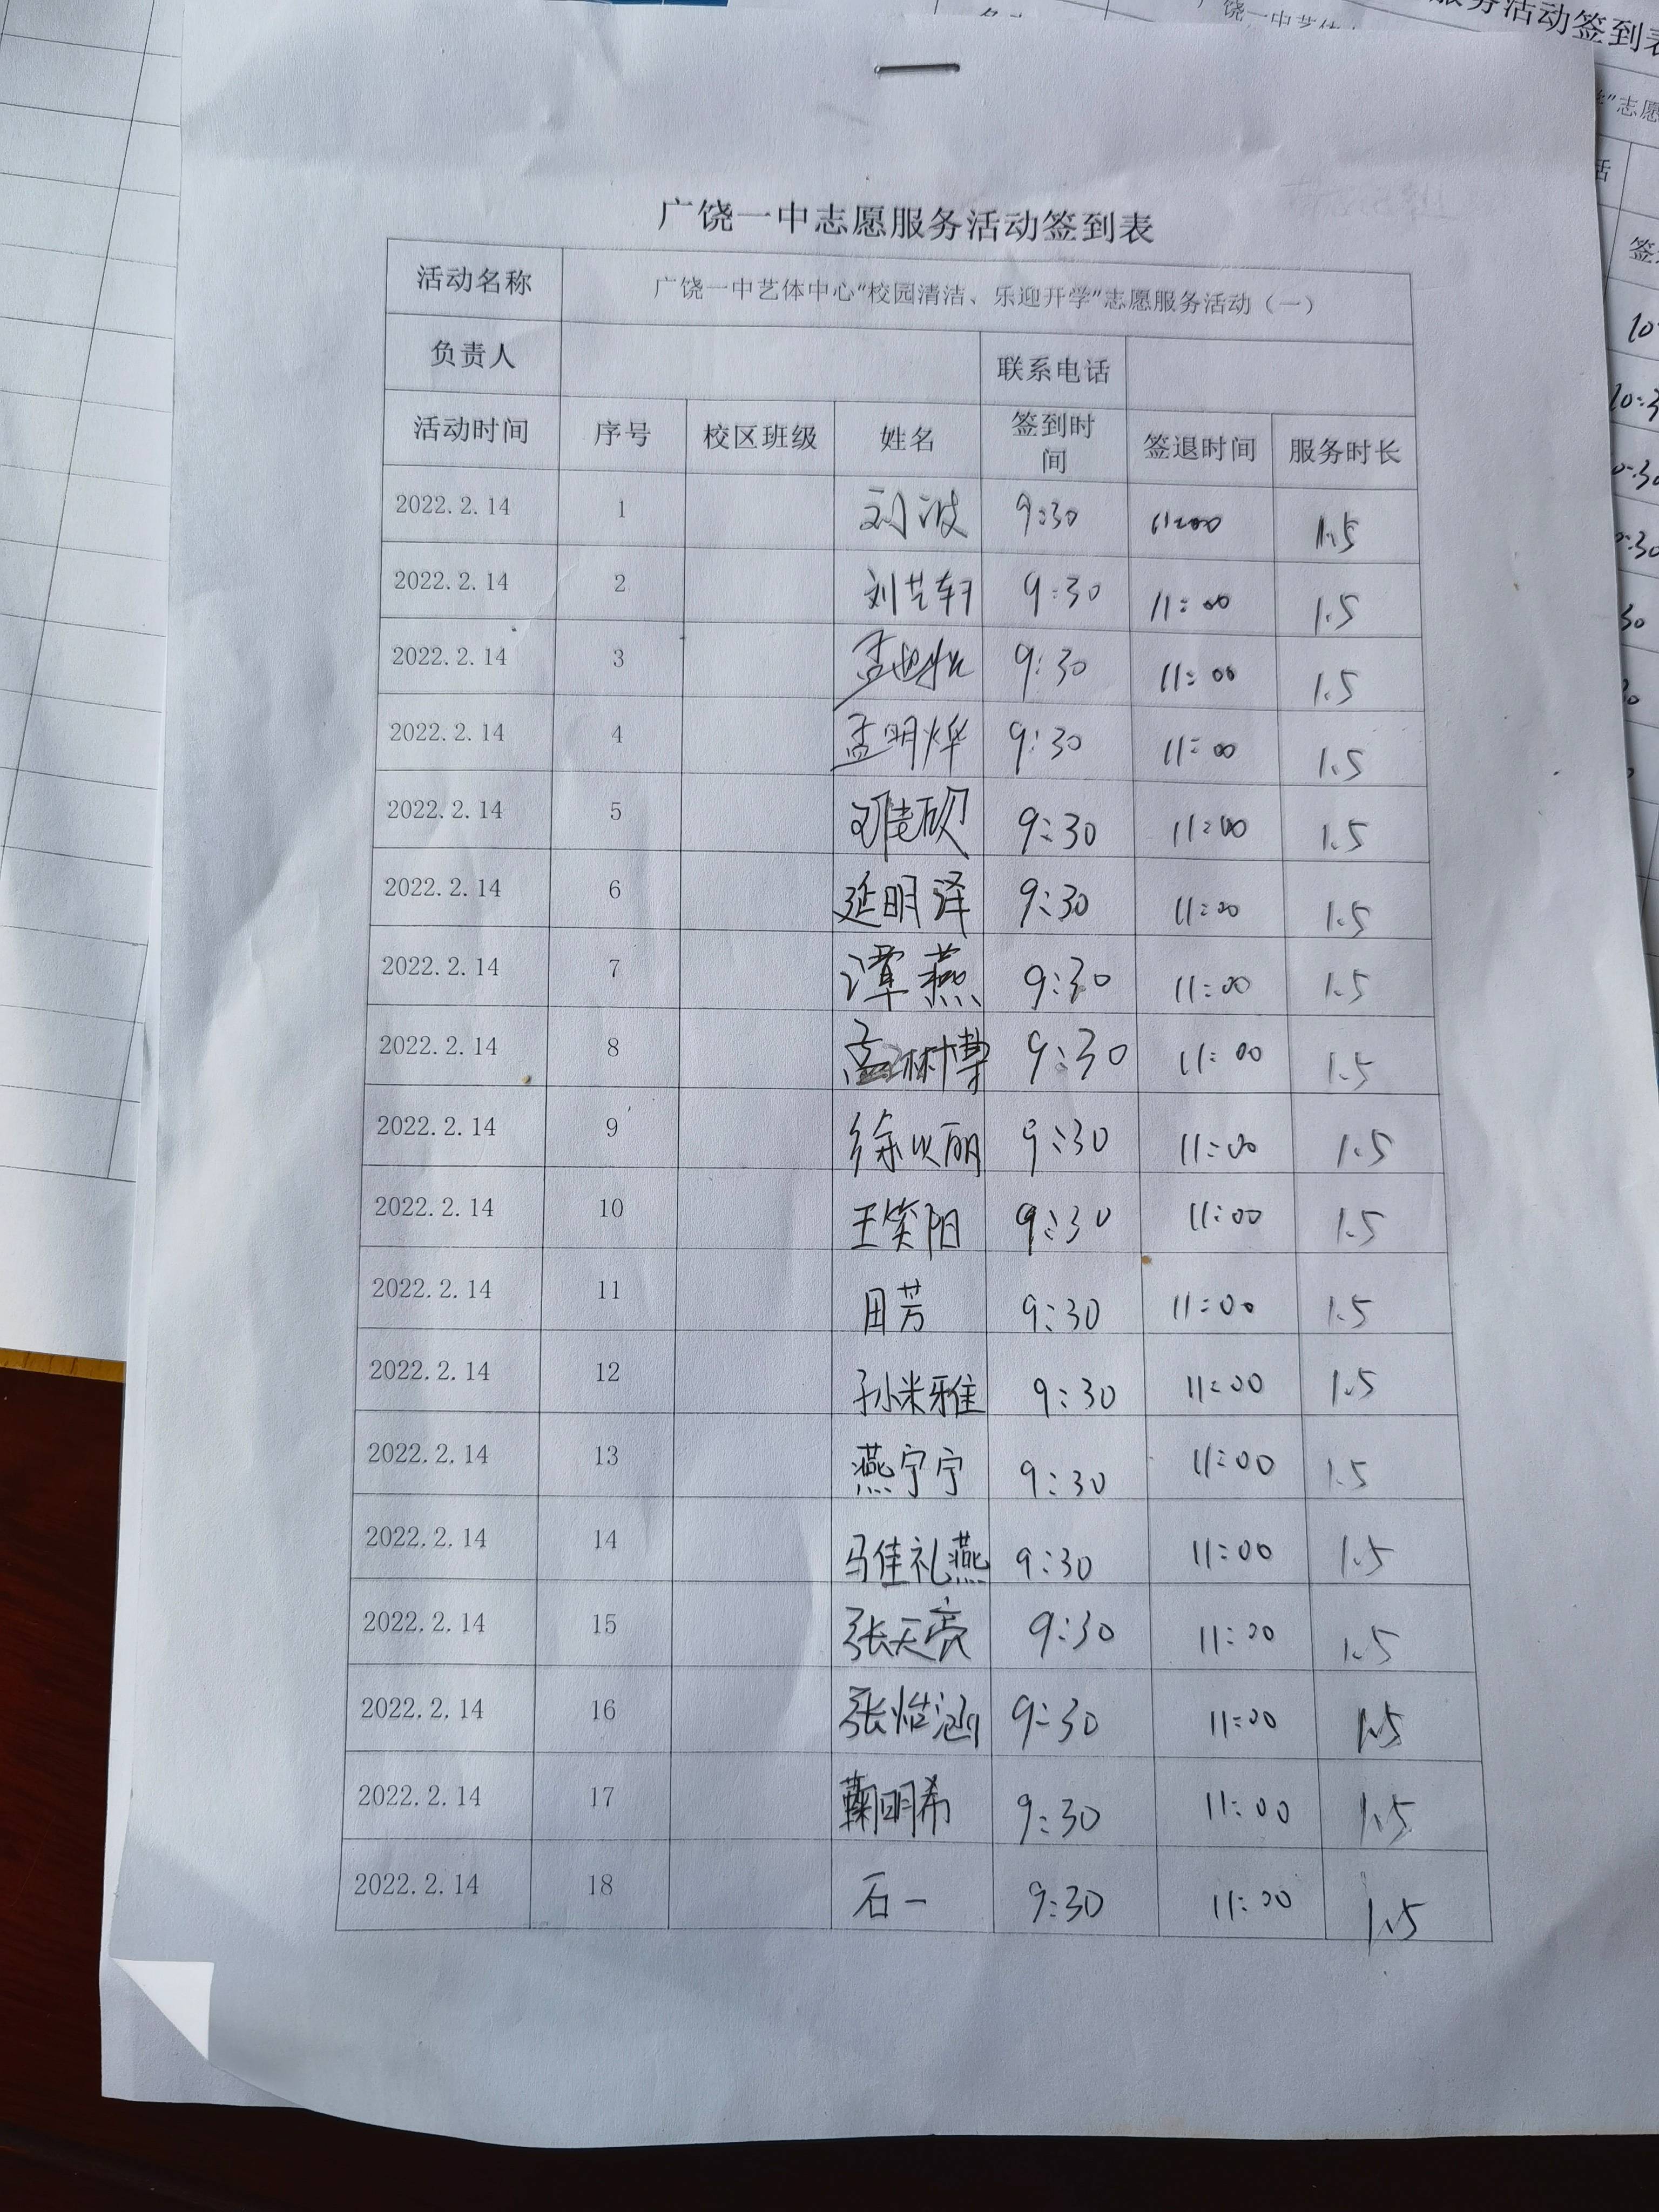 广饶一中志愿服务活动签到表
活动名称 广饶一中艺体中心“校园清洁、乐迎开学”志愿服务活动（一）
负责人 联系电话
活动时间 序号 校区班级 姓名 签到时间 签退时间 服务时长
2022.2.14 1 刘波 9:30 11:00 1.5
2022.2.14 2 刘艺轩 9:30 11:00 1.5
2022.2.14 3 9:30 11:00 1.5
2022.2.14 4 孟明烨 9:30 11:00 1.5
2022.2.14 5 9:30 11:00 1.5
2022.2.14 6 延明泽 9:30 11:00 1.5
2022.2.14 7 谭燕 9:30 11:00 1.5
2022.2.14 8 孟林博 9:30 11:00 1.5
2022.2.14 9 徐以丽 9:30 11:00 1.5
2022.2.14 10 王笑阳 9:30 11:00 1.5
2022.2.14 11 田芳 9:30 11:00 1.5
2022.2.14 12 孙米雅 9:30 11:00 1.5
2022.2.14 13 燕宁宁 9:30 11:00 1.5
2022.2.14 14 马佳礼燕 9:30 11:00 1.5
2022.2.14 15 张天亮 9:30 11:00 1.5
2022.2.14 16 张皓涵 9:30 11:00 1.5
2022.2.14 17 鞠明希 9:30 11:00 1.5
2022.2.14 18 石一 9:30 11:00 1.5